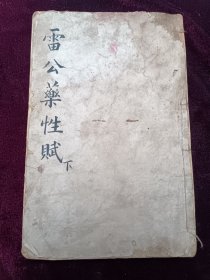 雷公藥性賦下